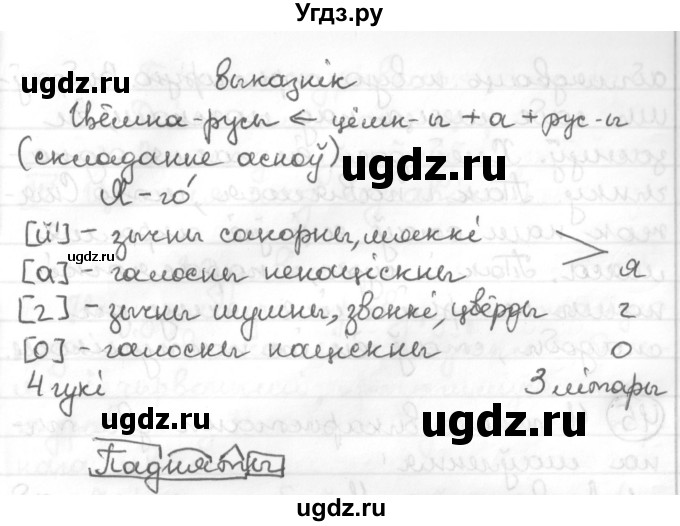 Угдз.ру
выказнік
ugdz.ru
Цёмна-русы ← цёмн-ы + а + рус-ы
(складанне асноў)
ugdz.ru
Я-го́
[й'] - зычны санорны, мяккі
ugdz.ru
[а] - галосны ненаціскны я
[г] - зычны шумны, звонкі, цвёрды г
[о] - галосны націскны о
4 гукі 3 літары
ugdz.ru
ugdz.ru
Падняты
ugdz.ru